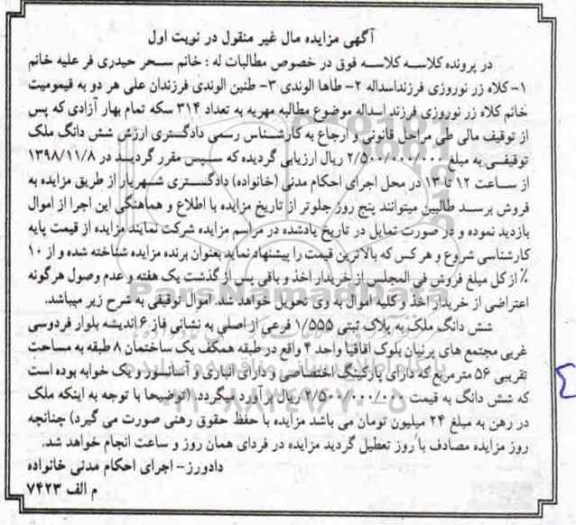 آگهی مزایده مال غیر منقول در نوبت اول
در پرونده کلاسه کلاسه فوق در خصوص مطالبات له : خانم سحر حیدری فر علیه خانم
۱- کلاه زر نوروزی فرزند اسداله ۲- طاها الوندی ۳- طنین الوندی فرزندان علی هر دو به قیمومیت
خانم کلاه زر نوروزی فرزند اسداله موضوع مطالبه مهریه به تعداد ۳۱۴ سکه تمام بهار آزادی که پس
از توقیف مالی طی مراحل قانونی و ارجاع به کارشناس رسمی دادگستری ارزش شش دانگ ملک
توقیفی به مبلغ ۲/۵۰۰/۰۰۰/۰۰۰ ریال ارزیابی گردیده که سپس مقرر گردید در ۱۳۹۸/۱۱/۸
از ساعت ۱۲ تا ۱۳ در محل اجرای احکام مدنی (خانواده) دادگستری شهریار از طریق مزایده به
فروش برسد طالبین میتوانند پنج روز جلوتر از تاریخ مزایده با اطلاع و هماهنگی این اجرا از اموال
بازدید نموده و در صورت تمایل در تاریخ یادشده در مراسم مزایده شرکت نمایند مزایده از قیمت پایه
کارشناسی شروع و هر کس که بالاترین قیمت را پیشنهاد نماید بعنوان برنده مزایده شناخته شده و از ۱۰
٪ از کل مبلغ فروش فی المجلس از خریدار اخذ و باقی پس از گذشت یک هفته و عدم وصول هرگونه
اعتراضی از خریدار اخذ و کلیه اموال به وی تحویل خواهد شد. اموال توقیفی به شرح زیر میباشد.
شش دانگ ملک به پلاک ثبتی ۱/۵۵۵ فرعی از اصلی به نشانی فاز ۶ اندیشه بلوار فردوسی
غربی مجتمع های پرنیان بلوک اقاقیا واحد ۲ واقع در طبقه همکف یک ساختمان ۸ طبقه به مساحت
تقریبی ۵۶ مترمربع که دارای پارکینگ اختصاصی و دارای انباری و آسانسور و یک خوابه بوده است
که شش دانگ به قیمت ۲/۵۰۰/۰۰۰/۰۰۰ ریال برآورد میگردد. (توضیحا با توجه به اینکه ملک
در رهن به مبلغ ۲۴ میلیون تومان می باشد مزایده با حفظ حقوق رهنی صورت می گیرد) چنانچه
روز مزایده مصادف با روز تعطیل گردید مزایده در فردای همان روز و ساعت انجام خواهد شد.
دادورز- اجرای احکام مدنی خانواده
م الف ۷۴۲۳